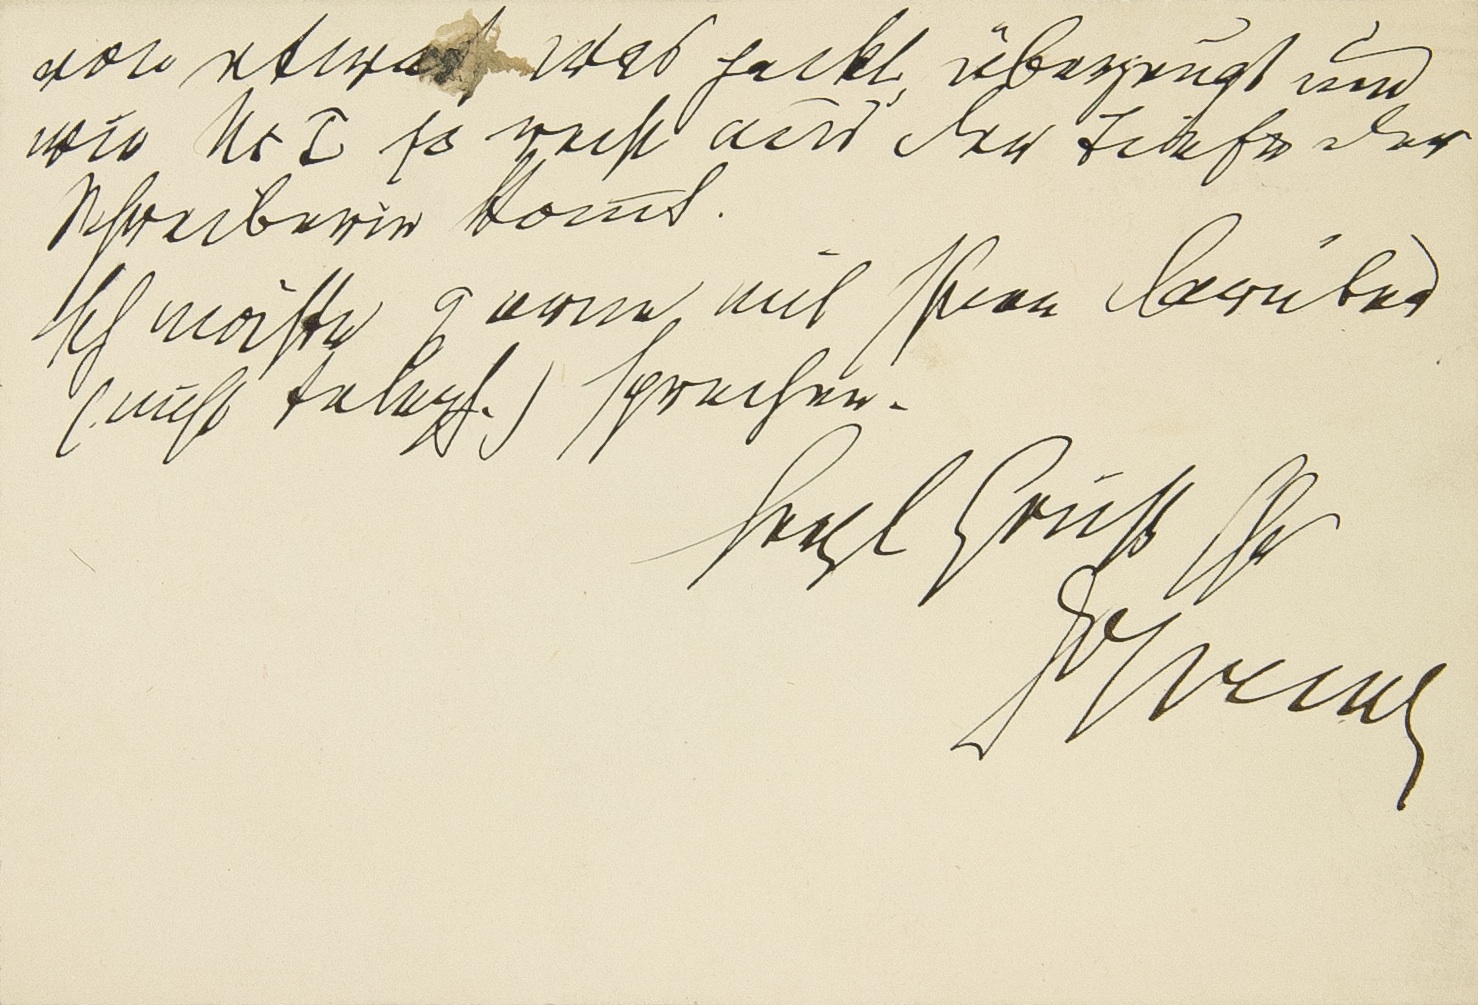 von etwas was packt, überzeugt und
wie No I so recht aus der Tiefe der
Schreiberin kommt.
Ich möchte gerne mit Ihnen darüber
(nicht teleph.) sprechen.
Herzl Gruß Ihr